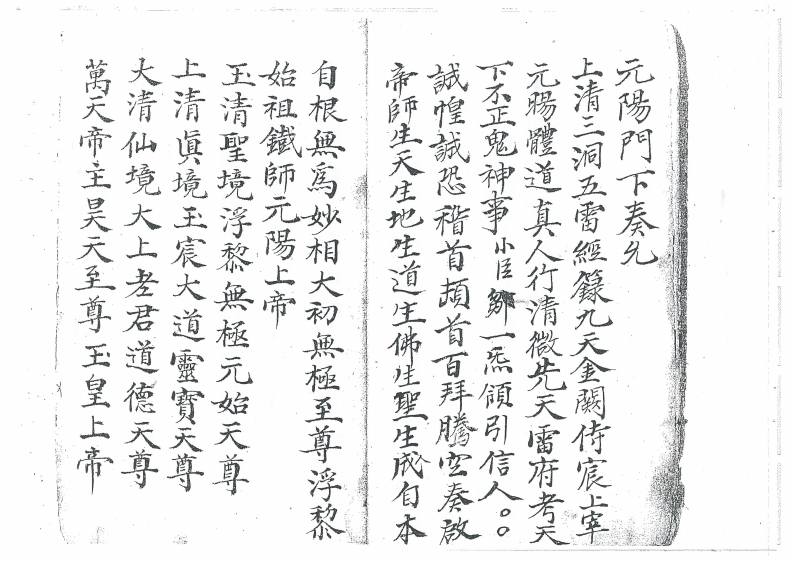 元陽門下奏允
上清三洞五雷經籙九天金闕侍宸上宰
元暘體道真人行清微先天雷府考天
下不正鬼神事小臣鄒一炁領引信人。。
誠惶誠恐稽首頓首百拜騰空奏啟
帝師生天生地生道生佛生聖生成自本
自根無為妙相大初無極至尊浮黎
始祖鐵師元陽上帝
玉清聖境浮黎無極元始天尊
上清眞境玉宸大道靈寶天尊
大清仙境大上老君道德天尊
萬天帝主昊天至尊玉皇上帝